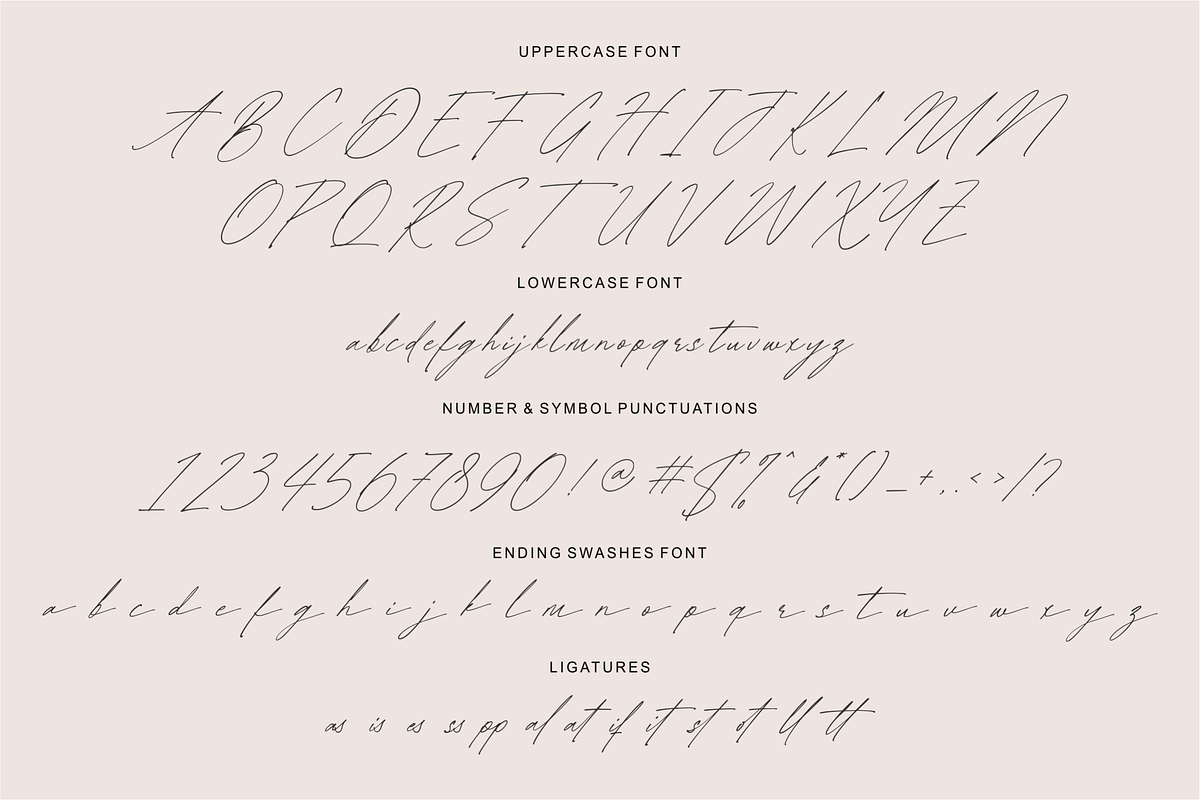 UPPERCASE FONT
A B C D E F G H I J K L M N
O P Q R S T U V W X Y Z
LOWERCASE FONT
a b c d e f g h i j k l m n o p q r s t u v w x y z
NUMBER & SYMBOL PUNCTUATIONS
1 2 3 4 5 6 7 8 9 0 ! @ # $ % ^ & * ( ) _ + , . . < > / ?
ENDING SWASHES FONT
a b c d e f g h i j k l m n o p q r s t u v w x y z
LIGATURES
as is es ss pp al at if it st ot ll tt